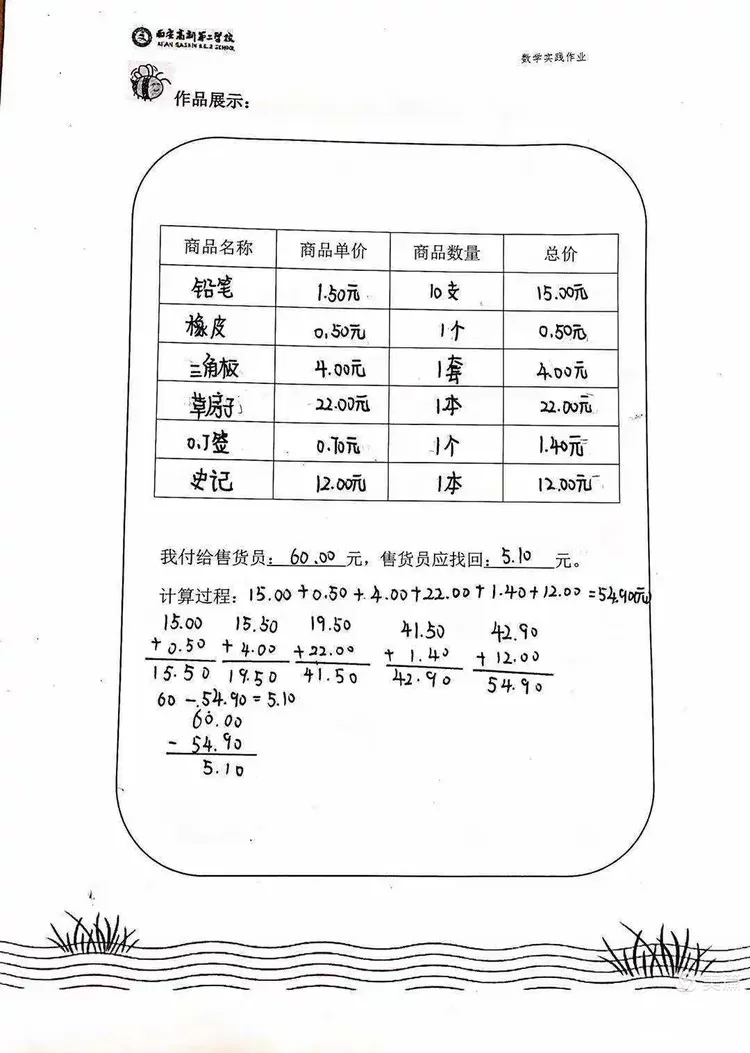 西安高新第二学校
数学实践作业
作品展示：
商品名称 商品单价 商品数量 总价
铅笔 1.50元 10支 15.00元
橡皮 0.50元 1个 0.50元
三角板 4.00元 1套 4.00元
草房子 22.00元 1本 22.00元
0.7签 0.70元 1个 1.40元
史记 12.00元 1本 12.00元
我付给售货员：60.00元，售货员应找回：5.10元。
计算过程：15.00+0.50+4.00+22.00+1.40+12.00=54.90元
15.00 15.50 19.50 41.50 42.90
+0.50 +4.00 +22.00 +1.40 +12.00
15.50 19.50 41.50 42.90 54.90
60-54.90=5.10
60.00
-54.90
5.10
美篇